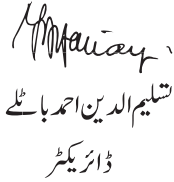 تسلیم الدین احمد باٹلے
ڈائریکٹر